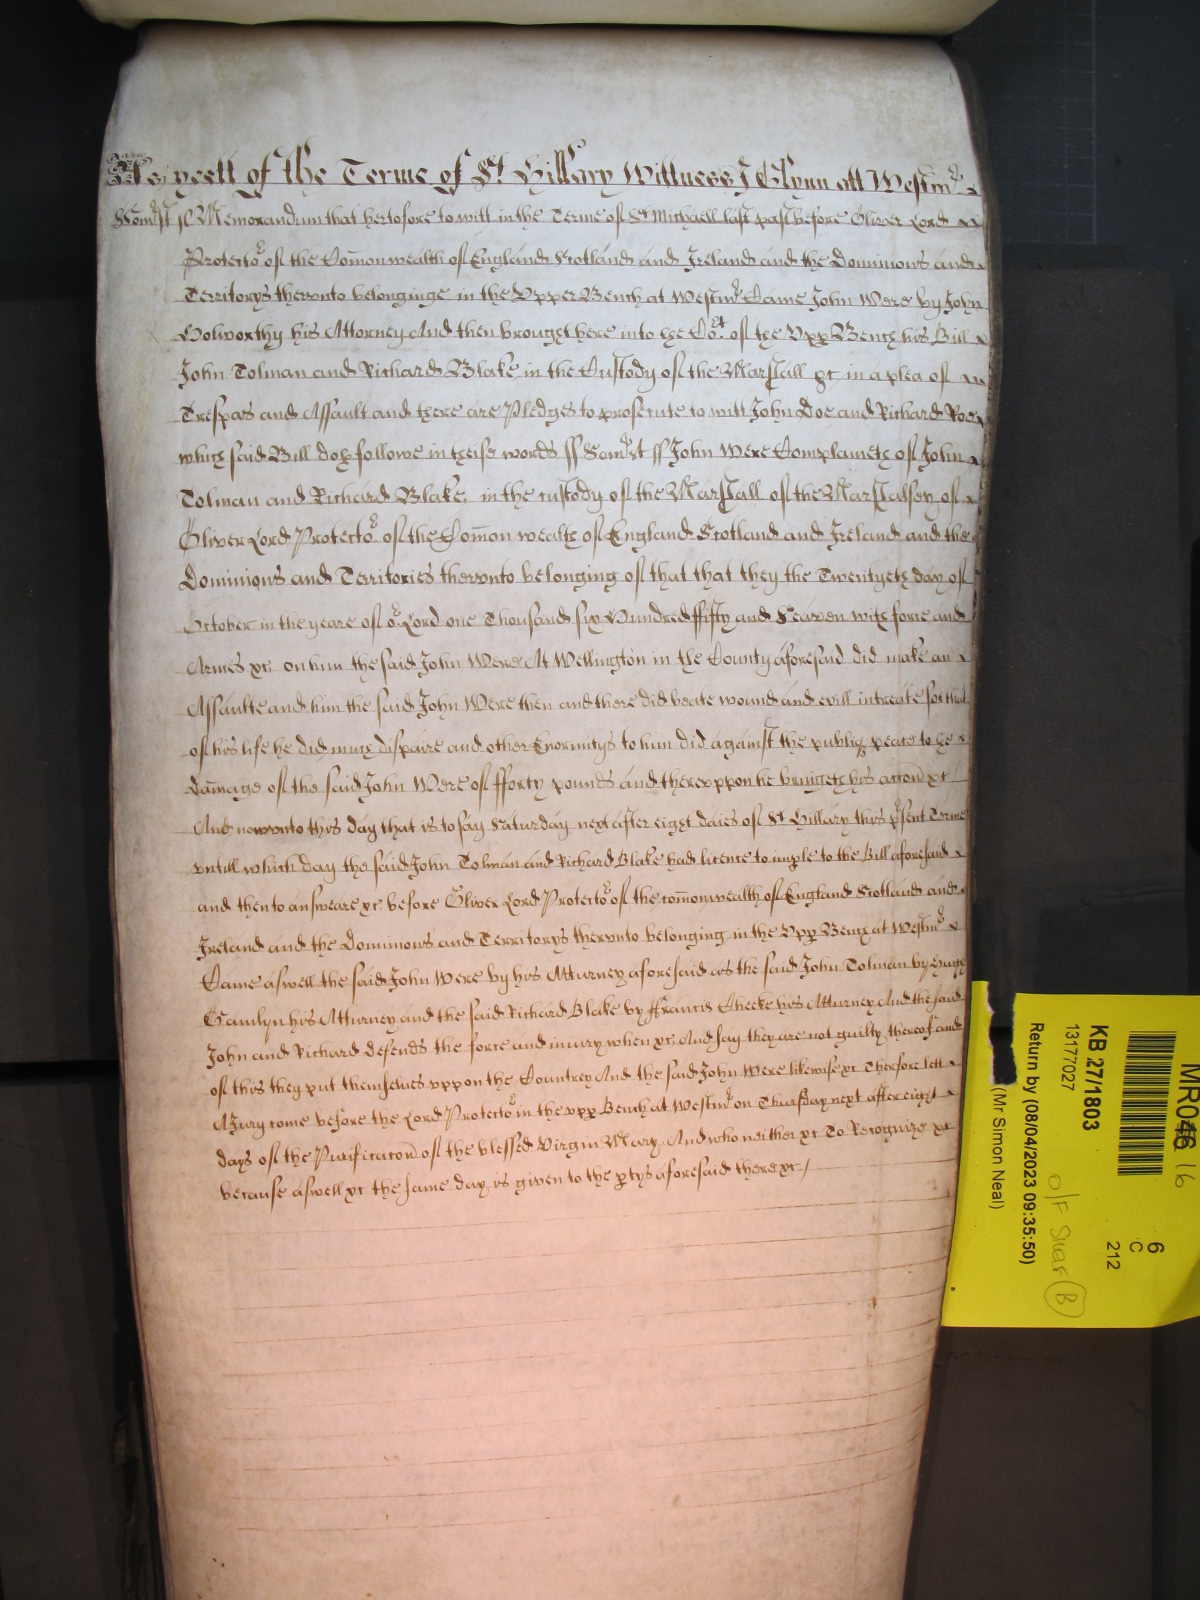 As yett of the Terme of St Hillary Wittness J Glynn att Westmr
Somrst ss Memorandum that hertofore to witt in the Terme of St Michaell last past before Oliver Lord
Protector of the Com̄onwealth of England Scotland and Ireland and the Dominions and
Territorys therevnto belonginge in the Vpper Bench at Westmr Came John Were by John
Holworthy his Attorney And then brought here into the Cort of the Vpp Bench his Bill
John Tolman and Richard Blake in the Custody of the Marshall &c in a plea of
Trespas and Assault and there are Pledges to prosecute to witt John Doe and Richard Roe
which said Bill doth followe in theise words ss Somrst ss John Were Complaineth of John
Tolman and Richard Blake in the custody of the Marshall of the Marshalsey of
Oliver Lord Protector of the Com̄on wealth of England Scotland and Ireland and the
Dominions and Territories therevnto belonging of that that they the Twentyeth day of
October in the yeare of or Lord one Thousand six Hundred ffifty and Seaven with force and
Armes &c on him the said John Were At Wellington in the County aforesaid did make an
Assaulte and him the said John Were then and there did beate wound and evill intreate soe that
of his life he did much dispaire and other Enormitys to him did against the publiq peace to the
dam̄age of the said John Were of fforty pounds and therevppon he bringeth his accon̄ &c /
And now vnto this day that is to say Saturday next after eight daies of St Hillary this prsent Terme
vntill which day the said John Tolman and Richard Blake had licence to imple to the Bill aforesaid
and then to answeare &c before Oliver Lord Protector of the com̄onwealth of England Scotland and
Ireland and the Dominions and Territorys therevnto belonging in the Vpp Bench at Westmr
Came aswell the said John Were by his Atturney aforesaid as the said John Tolman by Hugh
Gamlyn his Atturney and the said Richard Blake by ffrancis Cheeke his Atturney And the said
John and Richard defends the force and iniury when &c And say they are not guilty thereof and
of this they put themselues vppon the Countrey And the said John Were likewise &c Therefore lett
A Jury come before the Lord Protector in the vpp Bench at Westmr on Thursday next after eight
days of the Purificacon̄ of the blessed Virgin Mary And who neither &c To Recognize &c
because aswell &c the same day is given to the ptys aforesaid there &c /
MR046 16
KB 27/1803
13177027
Return by (08/04/2023 09:35:50)
(Mr Simon Neal)
6
C
212
B